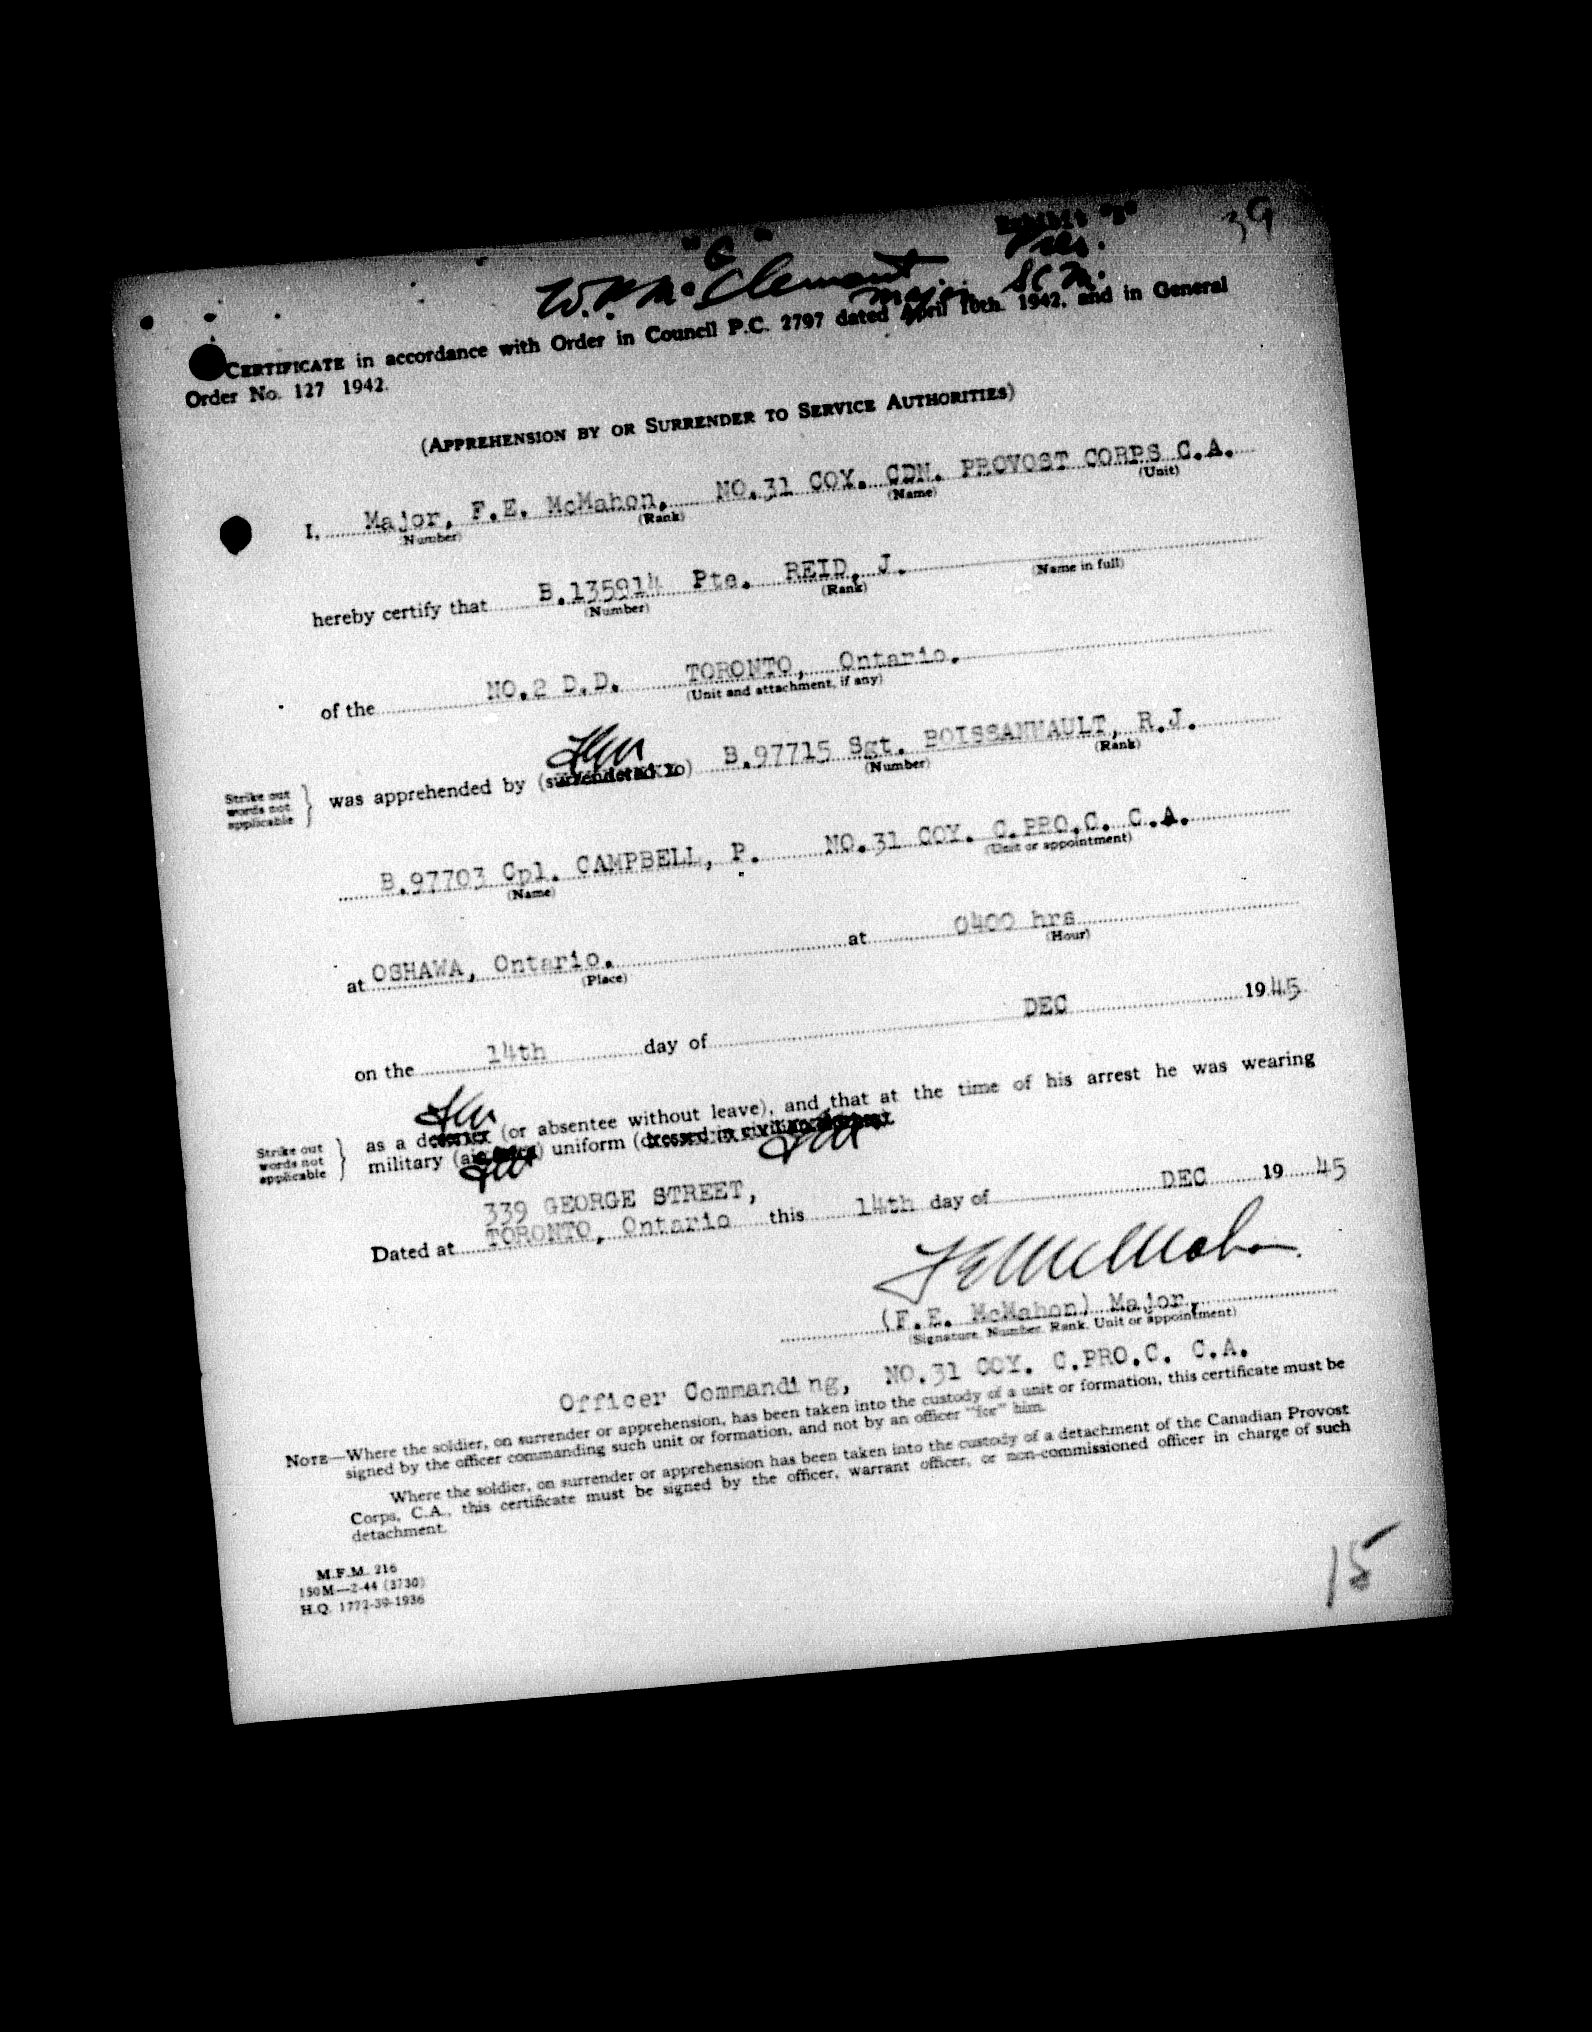 39
"C"
W.P. McClement Major Pres. S.C.M.
CERTIFICATE in accordance with Order in Council P.C. 2797 dated April 10th. 1942, and in General
Order No. 127 1942.
(APPREHENSION BY OR SURRENDER TO SERVICE AUTHORITIES)
I, Major, F.E. McMahon, NO.31 COY. CDN. PROVOST CORPS C.A.
(Number) (Rank) (Name) (Unit)
hereby certify that B.135914 Pte. REID, J.
(Number) (Rank) (Name in full)
of the NO.2 D.D. TORONTO, Ontario.
(Unit and attachment, if any)
Strike out
words not
applicable
was apprehended by (surrendered to) B.97715 Sgt. BOISSANNAULT, R.J.
(Number) (Rank)
B.97703 Cpl. CAMPBELL, P. NO.31 COY. C.PRO.C. C.A.
(Name) (Unit or appointment)
at OSHAWA, Ontario. at 0400 hrs
(Place) (Hour)
on the 14th day of DEC 1945
Strike out
words not
applicable
as a deserter (or absentee without leave), and that at the time of his arrest he was wearing
military uniform (dressed in civilian
339 GEORGE STREET,
Dated at TORONTO, Ontario this 14th day of DEC 19 45
F E McMahon
(F.E. McMahon) Major,
(Signature, Number, Rank, Unit or appointment)
Officer Commanding, NO.31 COY. C.PRO.C. C.A.
NOTE—Where the soldier, on surrender or apprehension, has been taken into the custody of a unit or formation, this certificate must be
signed by the officer commanding such unit or formation, and not by an officer "for" him.
Where the soldier, on surrender or apprehension has been taken into the custody of a detachment of the Canadian Provost
Corps, C.A., this certificate must be signed by the officer, warrant officer, or non-commissioned officer in charge of such
detachment.
M.F.M. 216
150M—2-44 (3730)
H.Q. 1772-39-1936
15